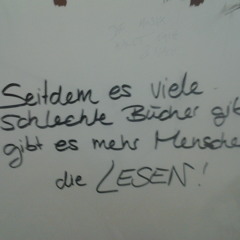 Seitdem es viele
schlechte Bücher gib
gibt es mehr Mensche
die LESEN!